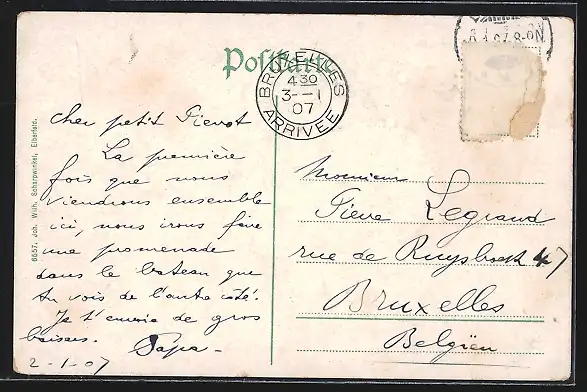 Postkarte
BRUXELLES
4 30
3--1
07
ARRIVÉE
8-9N
Cher petit Pierrot
La première
fois que nous
viendrons ensemble
ici, nous irons faire
une promenade
dans le bateau que
tu vois de l'autre côté.
Je t'envoie de gros
baisers. Papa-
2-1-07
Monsieur
Pierre Legrand
rue de Ruysbroek 47
Bruxelles
Belgien
6657. Joh. Wilh. Scharpwinkel, Elberfeld.